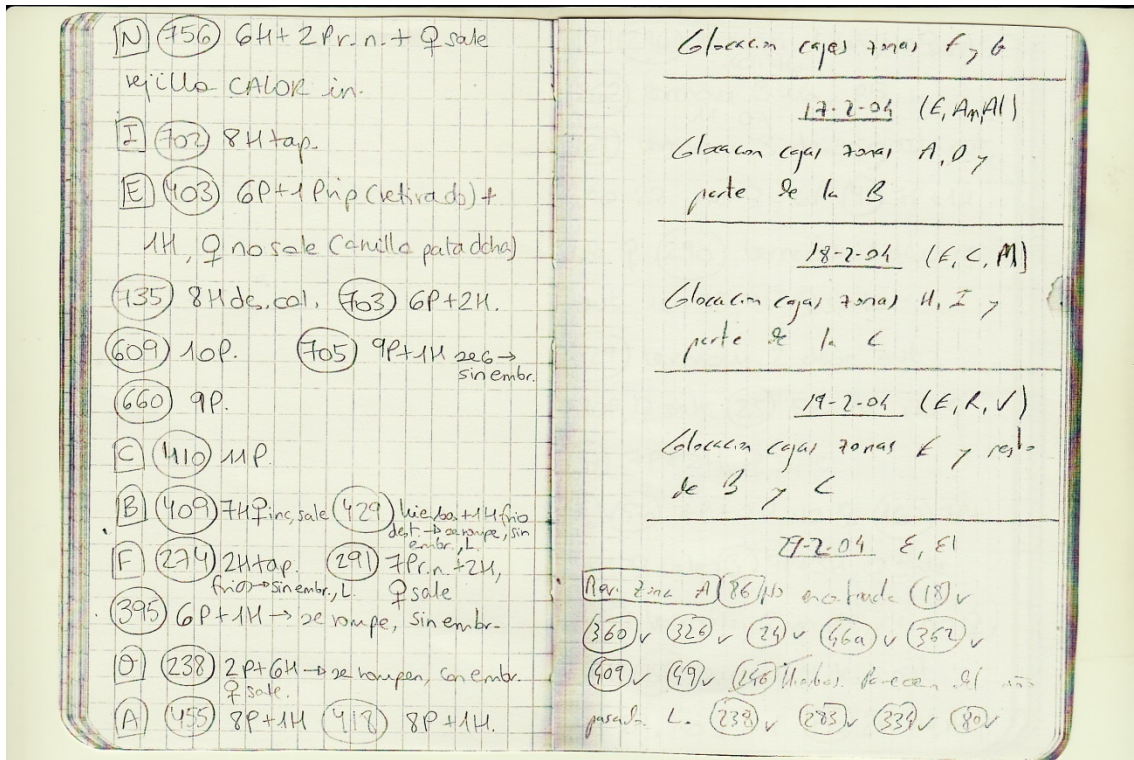 N 756 6H + 2 Pr.n. + ♀ sale
rejilla CALOR in.
I 702 8H tap.
E 403 6P + 1 Prip (retirado) +
1H, ♀ no sale (anilla pata dcha)
735 8H des. col. 703 6P + 2H.
609 10P. 705 9P + 1H se G →
sin embr.
660 9P.
C 410 11P.
B 409 7H ♀ inc, sale 429 hierba + 1H frío
dest. → se rompe, sin
embr., L.
F 274 2H tap. 291 7Pr.n. + 2H,
frío → sin embr., L. ♀ sale
395 6P + 1H → se rompe, sin embr.
D 238 2P + 6H → se rompen, con embr.
♀ sale.
A 455 8P + 1H 418 8P + 1H.
Colocacion cajas zonas F y G
17-2-04 (E, An, Al)
Colocacion cajas zonas A, D y
parte de la B
18-2-04 (E, C, M)
Colocacion cajas zonas H, I y
parte de la C
19-2-04 (E, R, V)
Colocacion cajas zonas E y resto
de B y C
29-2-04 E, El
Rev. Zona A 86 No encontrada 18 v
360 v 326 v 24 v 46a v 362 v
409 v 49 v 246 Parecen del año
pasado. L. 238 v 283 v 334 v 80 v